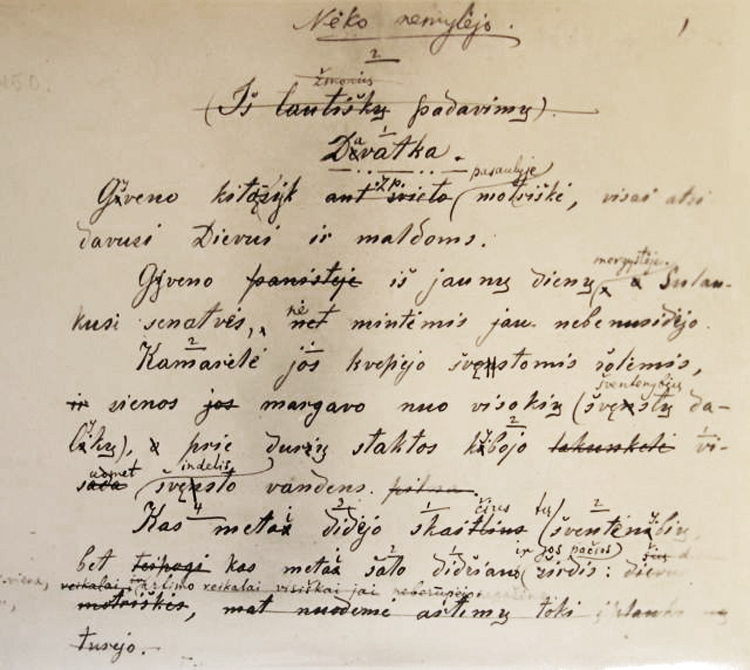 Nėko nemylėjo.
2
žmonių
(Iš lautiškų padavimų)
Davatka.
pasaulyje
Gyveno kitąsyk ant svieto motriškė, visai atsi
davusi Dievui ir maldoms.
mergystėje
Gyveno panistėje iš jaunų dienų Sulau-
nė
kusi senatvės, net mintėmis jau nebenusidėjo.
Kamarėlė jos kvepėjo švęstomis žolėmis,
šventenybių
ir sienos jos margavo nuo visokių (švęstų da-
likų), prie durių staktos kybojo lakunkėlė vi-
indelis
sada švęsto vandens. pilna.
Kas metai didėjo skaitlius šventenybių,
ir jos pačios
bet teipogi kas metai šalo didžiau širdis:
reikalai artimo reikalai visiškai jai neberūpėjo
motriškės, mat nuodėmė artimų toki
turėjo.